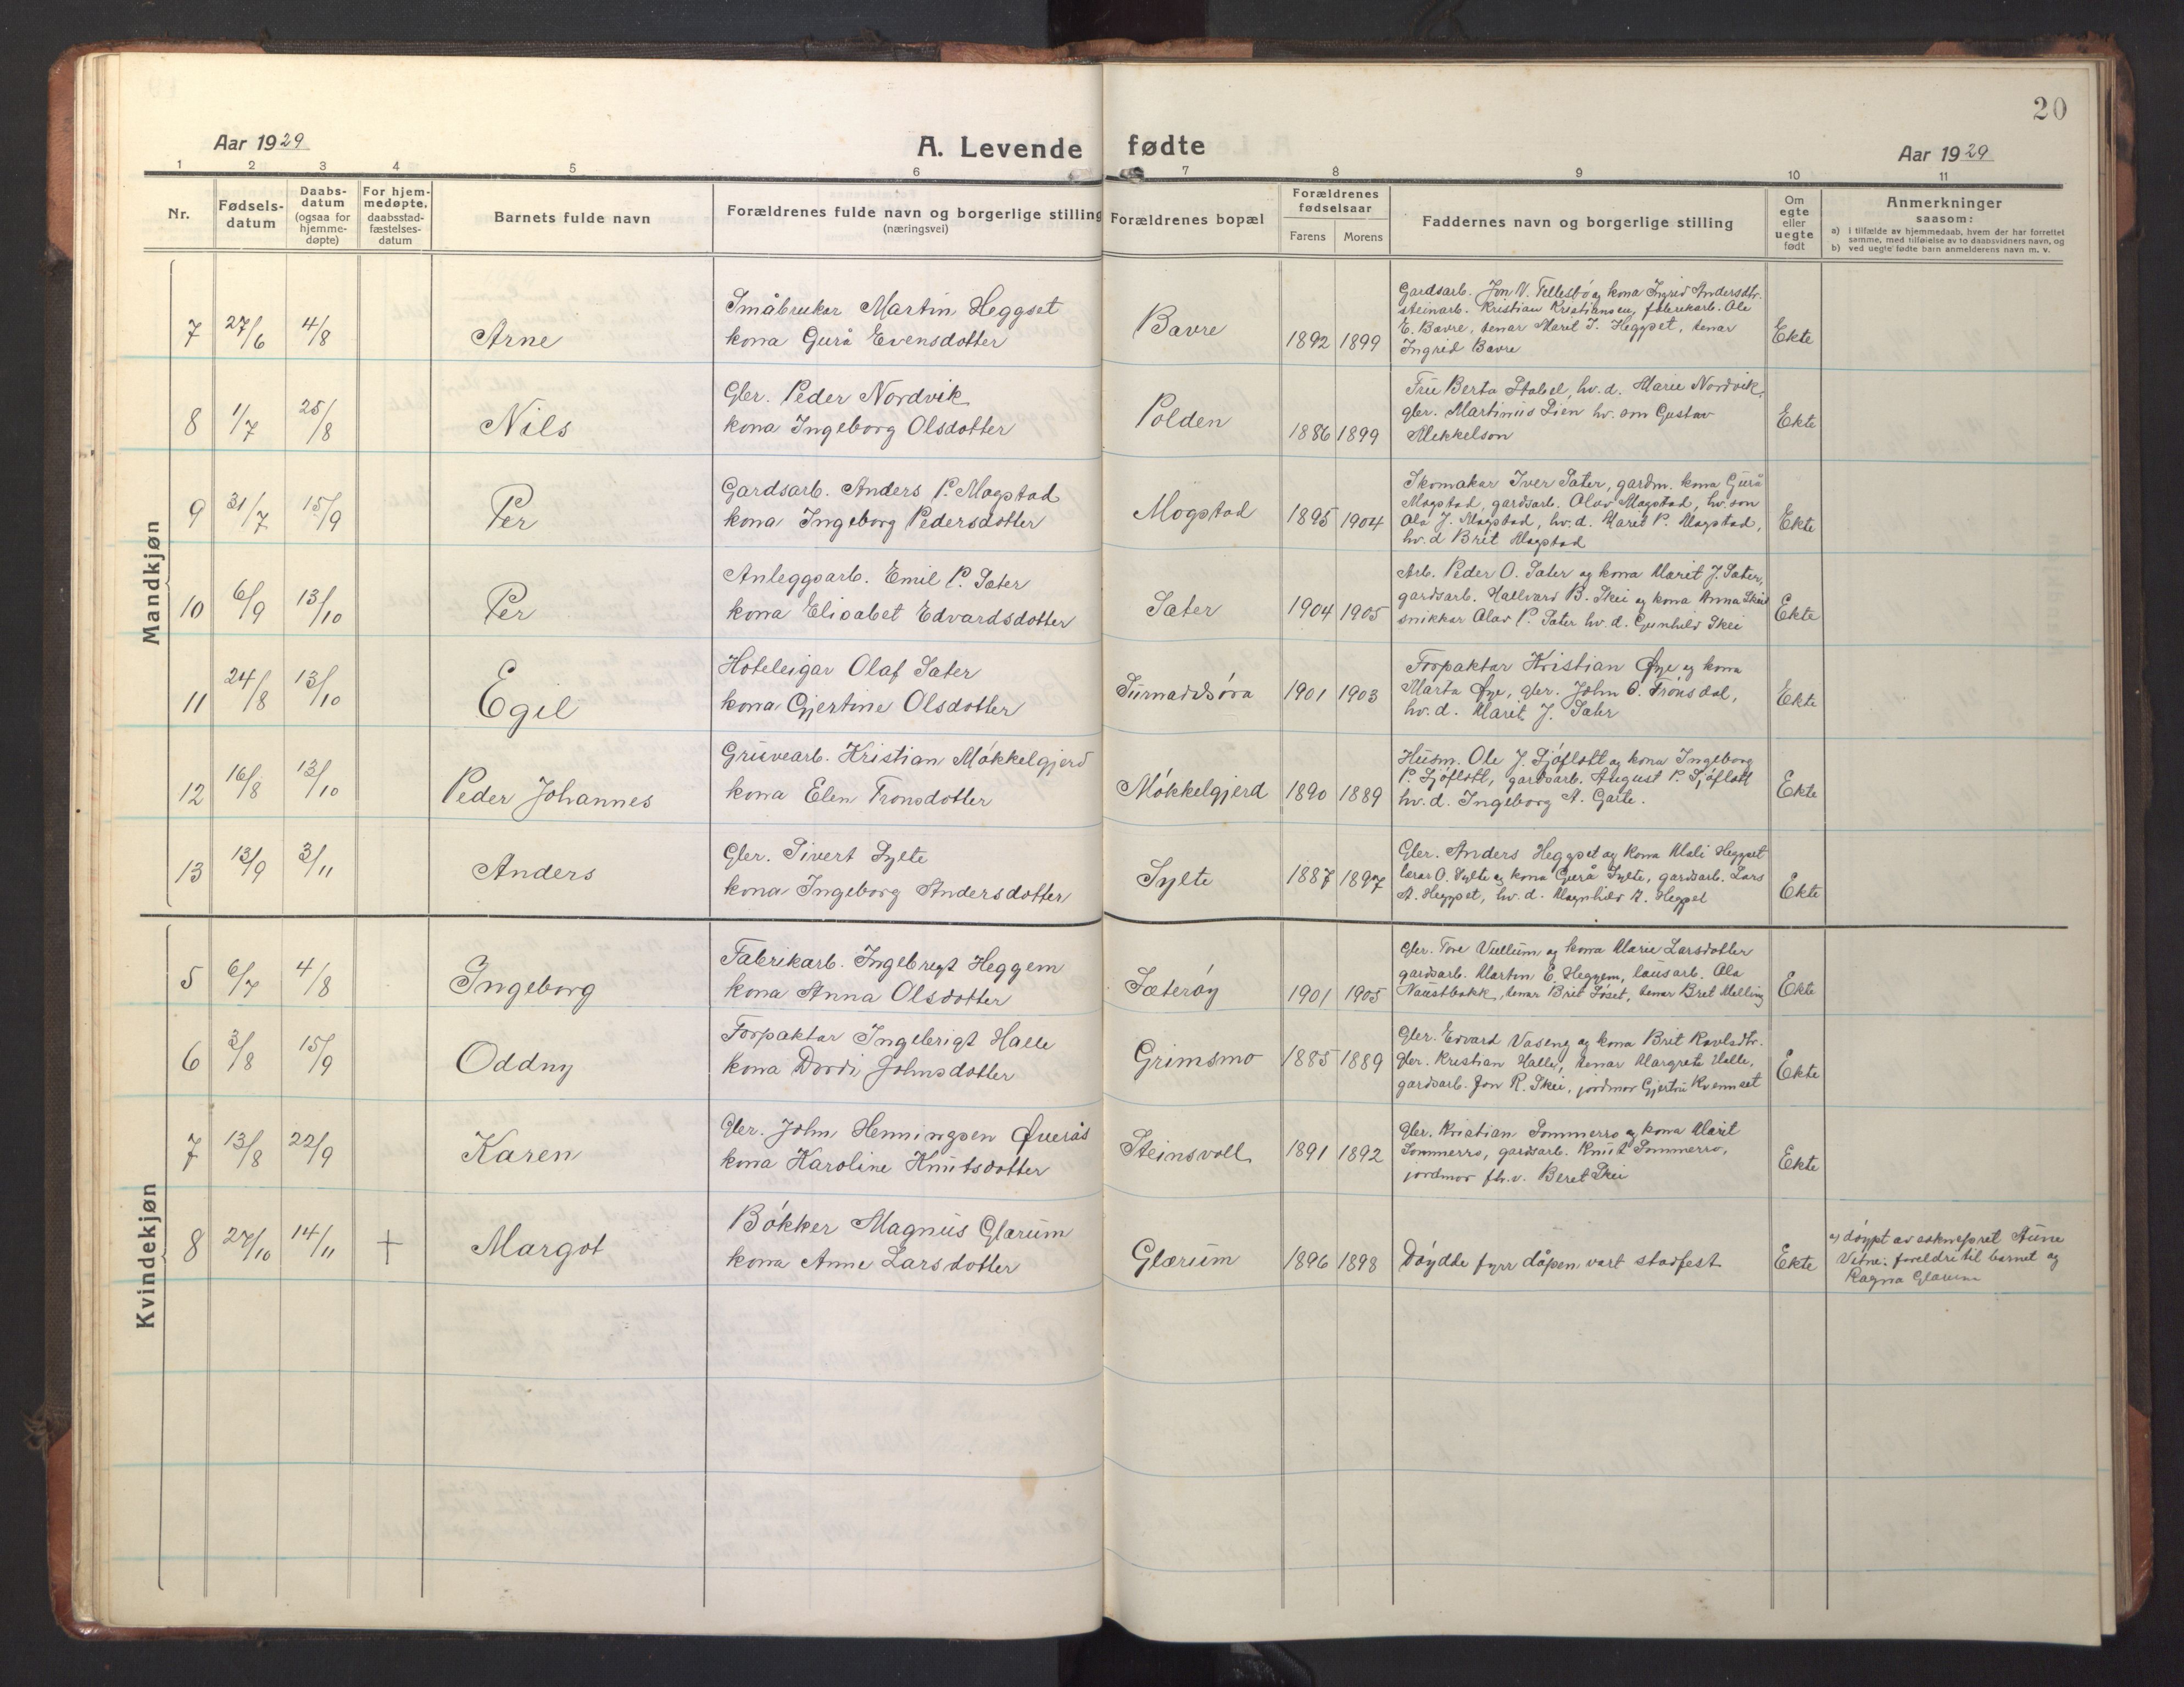 20
Aar 1929
A. Levende fødte
Aar 1929
1 2 3 4 5 6 7 8 9 10 11
Nr.
Fødsels-
datum
Daabs-
datum
(ogsaa for
hjemme-
døpte)
For hjem-
medøpte,
daabsstad-
fæstelses-
datum
Barnets fulde navn
Forældrenes fulde navn og borgerlige stilling
(næringsvei)
Forældrenes bopæl
Forældrenes
fødselsaar
Farens Morens
Faddernes navn og borgerlige stilling
Om
egte
eller
uegte
født
Anmerkninger
saasom:
a) i tilfælde av hjemmedaab, hvem der har forrettet
samme, med tilføielse av to daabsvidners navn, og
b) ved uegte fødte barn anmelderens navn m. v.
Mandkjøn
7 27/6 4/8 Arne
Småbrukar Martin Heggset
kona Gurå Evensdotter
Bævre 1892 1899
Gardsarb. Jon V. Tellesbø og kona Ingrid Andersdtr.
steinarb. Kristian Kristiansen, fabrikarb. Ole
E. Bævre, tenar Marit J. Heggset, tenar
Ingrid Bævre
Ekte
8 1/7 25/8 Nils
Gbr. Peder Nordvik
kona Ingeborg Olsdotter
Polden 1886 1899
Fru Berta Stabel, hv.d. Marie Nordvik,
gbr. Martinus Lien hv. son Gustav
Mekkelson
Ekte
9 31/7 15/9 Per
Gardsarb. Anders P. Mogstad
kona Ingeborg Pedersdotter
Mogstad 1895 1904
Skomakar Iver Sæter, gardm. kona Gurå
Mogstad, gardsarb. Olav Mogstad, hv. son
Ola J. Mogstad, hv.d. Marit P. Mogstad,
hv.d Brit Mogstad
Ekte
10 6/9 13/10 Per
Anleggsarb. Emil P. Sæter
kona Elisabet Edvardsdotter
Sæter 1904 1905
Arb. Peder O. Sæter og kona Marit J. Sæter,
gardsarb. Hallvard B. Skei og kona Anna Skei
snikkar Olav P. Sæter hv.d. Gunhild Skei
Ekte
11 24/8 13/10 Egil
Hoteleigar Olaf Sæter
kona Gjertine Olsdotter
Surnadalsøra 1901 1903
Forpaktar Kristian Øye og kona
Marta Øye, gbr. John O. Trønsdal,
hv.d. Marit J. Sæter
Ekte
12 16/8 13/10 Peder Johannes
Gruvearb. Kristian Møkkelgjerd
kona Elen Tronsdotter
Møkkelgjerd 1890 1889
Husm. Ole J. Sjøflott og kona Ingeborg
P. Sjøflott, gardsarb. August P. Sjøflott
hv.d. Ingeborg A. Garte.
Ekte
13 13/9 3/11 Anders
Gbr. Sivert Sylte
kona Ingeborg Andersdotter
Sylte 1887 1897
Gbr. Anders Heggset og kona Mali Heggset
lærar O. Sylte og kona Gurå Sylte, gardsarb. Lars
A. Heggset, hv.d. Magnhild A. Heggset
Ekte
Kvindekjøn
5 6/7 4/8 Ingeborg
Fabrikarb. Ingebrigt Heggem
kona Anna Olsdotter
Sæterøy 1901 1905
Gbr. Tore Vullum og kona Marie Larsdotter
gardsarb. Marten E. Heggem, lausarb. Ola
Naustbakk, tenar Brit Søset, tenar Bret Melling
Ekte
6 3/8 15/9 Oddny
Forpaktar Ingebrigt Halle
kona Dordi Johnsdotter
Grimsmo 1885 1889
Gbr. Edvard Vaseng og kona Brit Ravlsdtr.
Gbr. Kristian Halle, tenar Margrete Halle,
gardsarb. Jon R. Skei, jordmor Gjertru Kvennset
Ekte
7 13/8 22/9 Karen
Gbr. John Henningsen Øverås
kona Karoline Knutsdotter
Steinsvoll 1891 1892
Gbr. Kristian Sommerro og kona Marit
Sommerro, gardsarb. Knut Sommerro,
jordmor fhv. Beret Skei
Ekte
8 27/10 14/11 + Margot
Bøkker Magnus Glærum
kona Anne Larsdotter
Glærum 1896 1898
Døydde fyrr dåpen vart stadfest
Ekte
a) døypt av sokneprest Aune
Vitne: foreldre til barnet og
Ragna Glærum